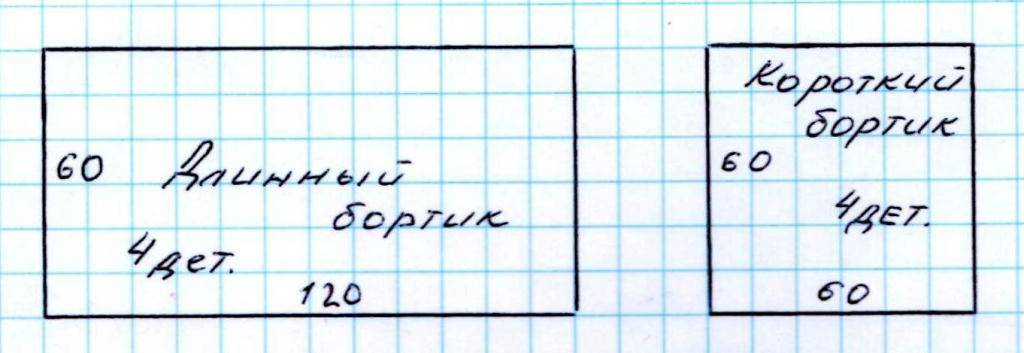 60
Длинный
бортик
4 дет.
120
Короткий
бортик
60
4 дет.
60